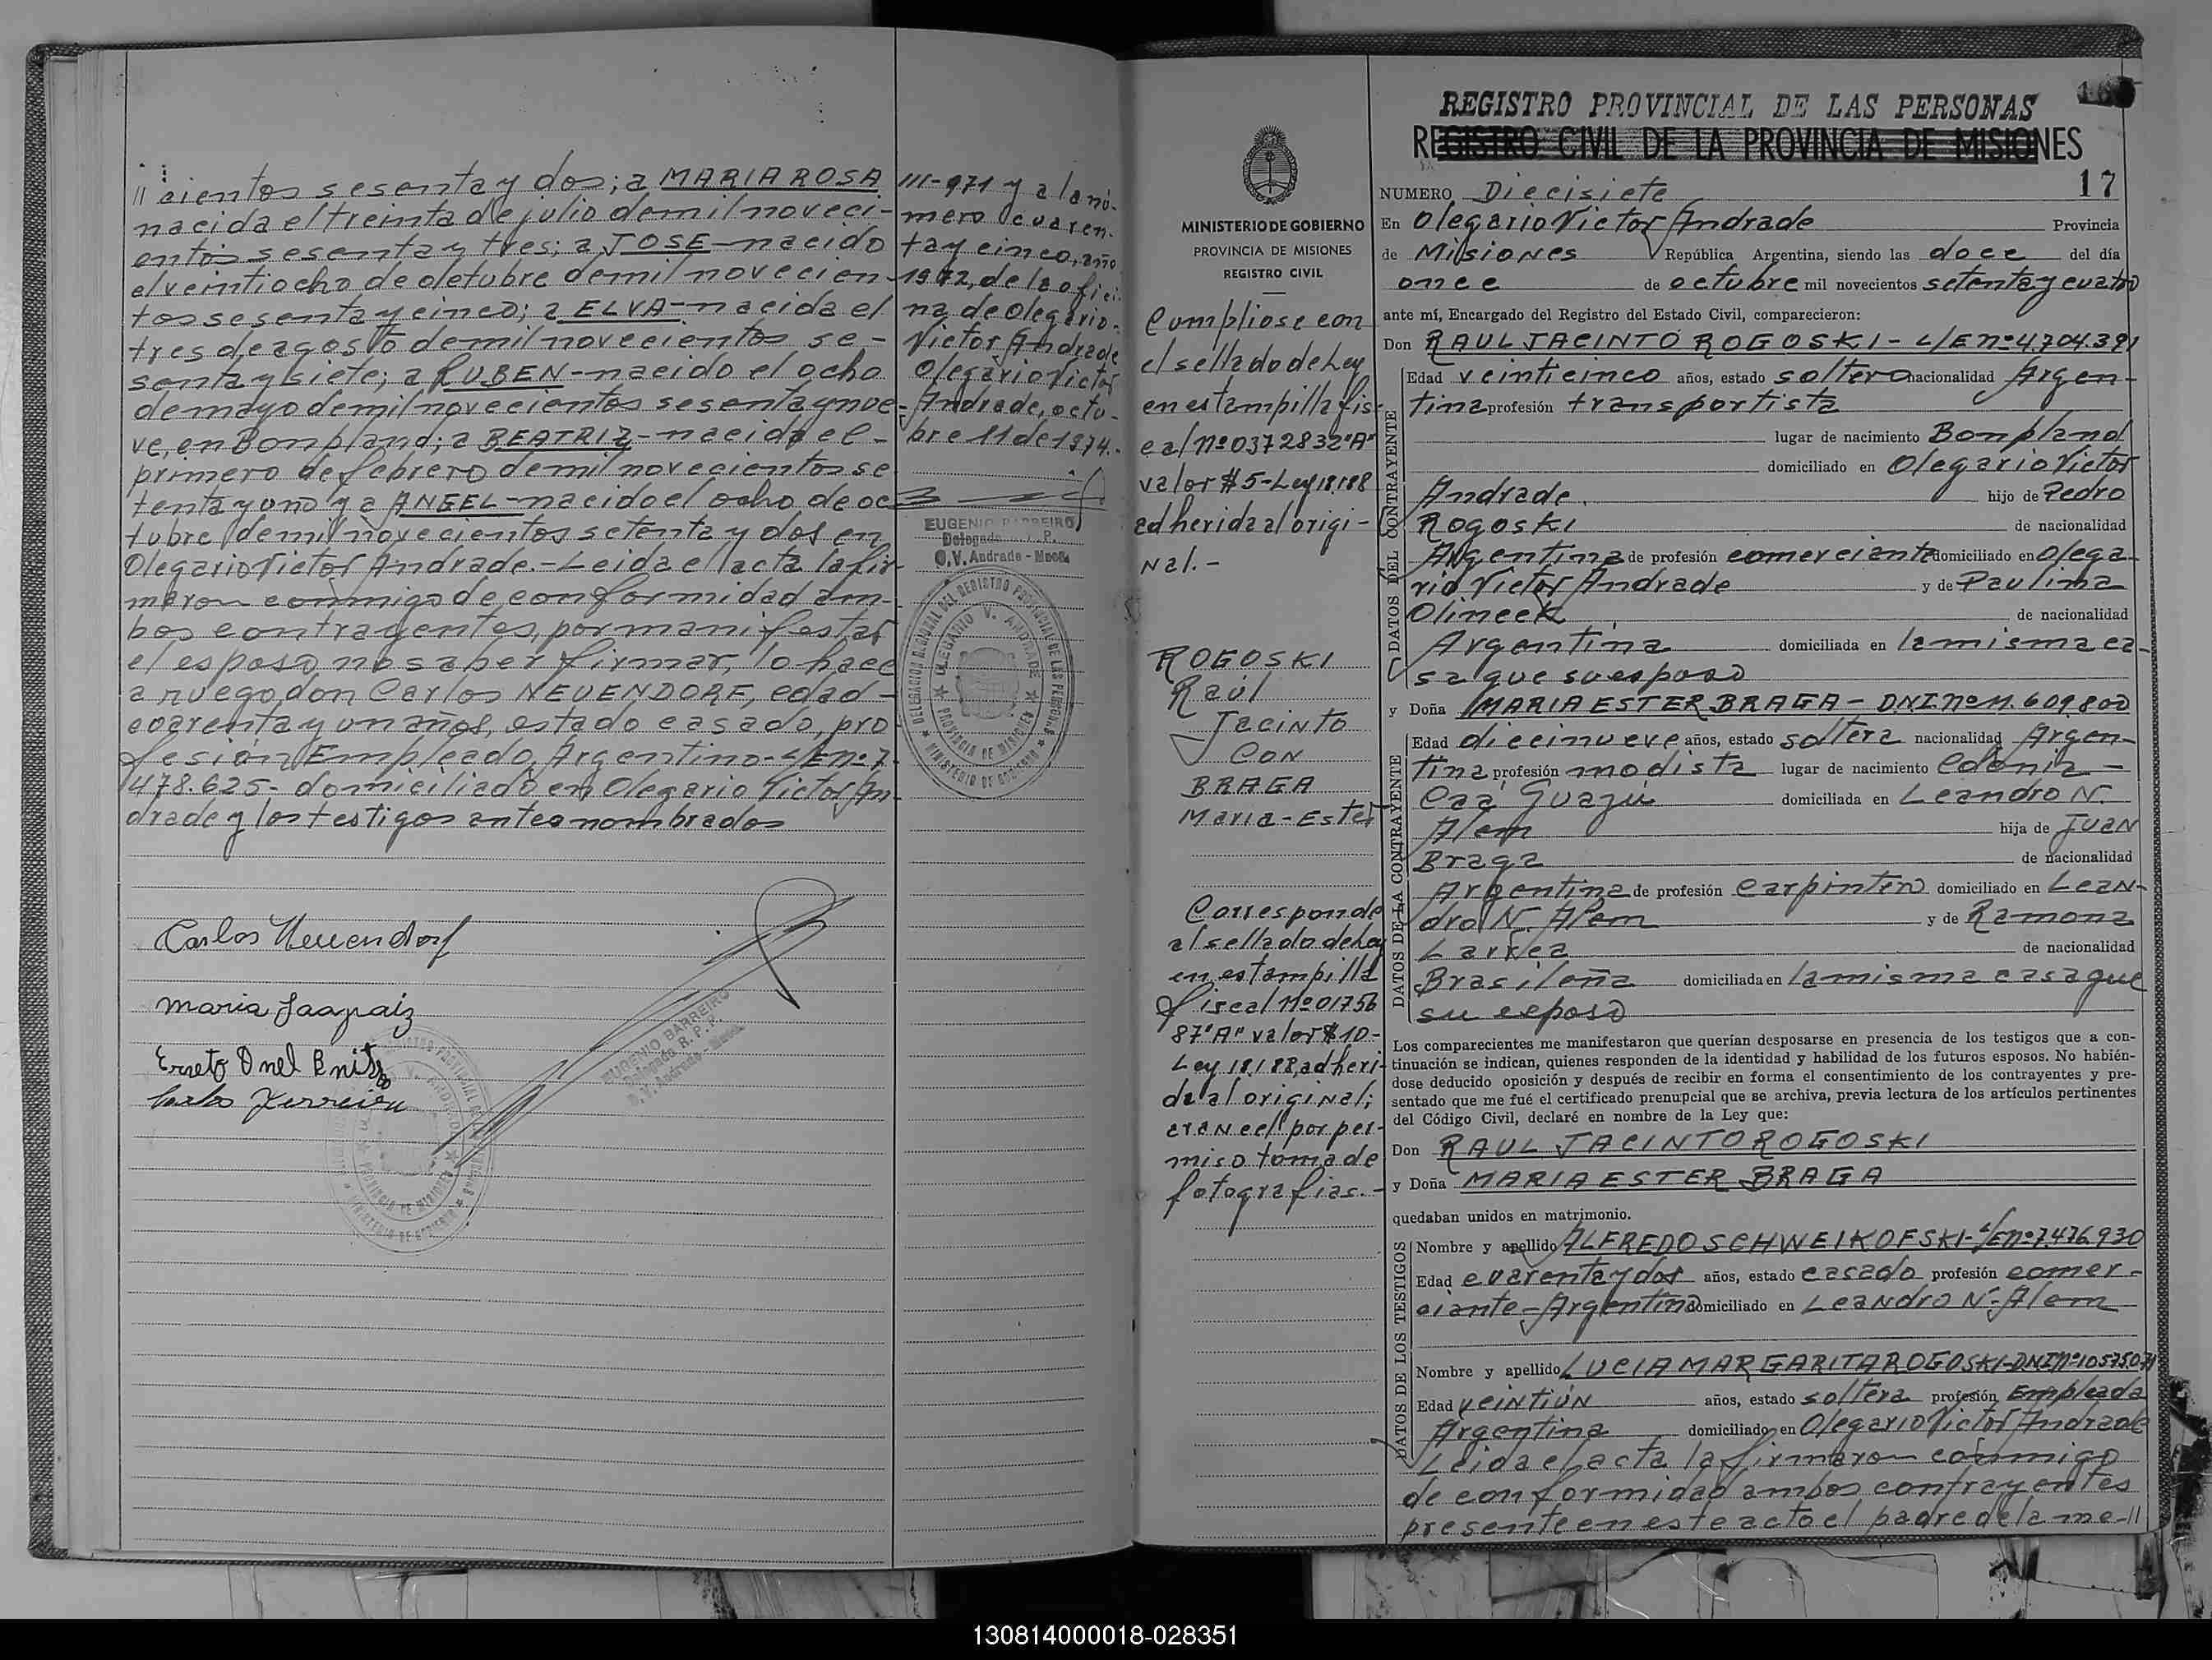 // cientos sesenta y dos; a MARIA ROSA
nacida el treinta de julio de mil noveci-
entos sesenta y tres; a JOSE - nacido
el veintiocho de octubre de mil novecien-
tos sesenta y cinco; a ELVA - nacida el
tres de agosto de mil novecientos se-
senta y siete; a RUBEN - nacido el ocho
de mayo de mil novecientos sesenta y nue-
ve, en Bonpland; a BEATRIZ - nacida el -
primero de febrero de mil novecientos se
tenta y uno y a ANGEL - nacido el ocho de oc
tubre de mil novecientos setenta y dos en
Olegario Victor Andrade. - Leida el acta la fir-
maron conmigo de conformidad am-
bos contrayentes, por manifestar
el esposo no saber firmar, lo hace
a ruego don Carlos NEUENDORF, edad -
cuarenta y un años, estado casado, pro
fesión Empleado, Argentino - L/E nº 7.
478.625 - domiciliado en Olegario Victor An-
drade y los testigos antes nombrados
Carlos Neuendorf
Maria
EUGENIO BARREIRO
Delegado R.P.P.
O.V. Andrade - Mnes.
III-971 y al nú-
mero cuaren-
ta y cinco, año
1972, de la ofici-
na de Olegario-
Victor Andrade
Olegario Victor
Andrade, octu-
bre 11 de 1974.-
EUGENIO BARREIRO
Delegado R.P.P.
O.V. Andrade - Mnes.
DELEGACION REGIONAL DEL REGISTRO PROVINCIAL DE LAS PERSONAS
OLEGARIO V. ANDRADE
PROVINCIA DE MISIONES
MINISTERIO DE GOBIERNO
MINISTERIO DE GOBIERNO
PROVINCIA DE MISIONES
REGISTRO CIVIL
Cumpliose con
el sellado de Ley
en estampilla fis-
cal nº 0372832 "A"
valor $ 5 - Ley 18.188
adherida al origi-
nal. -
ROGOSKI
Raúl
Jacinto
CON
BRAGA
Maria - Ester
Corresponde
al sellado de Ley
en estampilla
fiscal nº 01756
87 "A" valor $ 10 -
Ley 18.188, adheri-
da al original;
arancel por per-
miso toma de
fotografias. -
REGISTRO PROVINCIAL DE LAS PERSONAS
REGISTRO CIVIL DE LA PROVINCIA DE MISIONES
17
NUMERO Diecisiete
En Olegario Victor Andrade Provincia
de Misiones República Argentina, siendo las doce del día
once de octubre mil novecientos setenta y cuatro
ante mí, Encargado del Registro del Estado Civil, comparecieron:
Don RAUL JACINTO ROGOSKI - L/E nº 4.704.391
DATOS DEL CONTRAYENTE
Edad veinticinco años, estado soltero nacionalidad Argen-
tina profesión transportista
lugar de nacimiento Bonpland
domiciliado en Olegario Victor
Andrade. hijo de Pedro
Rogoski de nacionalidad
Argentina de profesión comerciante domiciliado en Olega-
rio Victor Andrade y de Paulina
Olineek de nacionalidad
Argentina domiciliada en la misma ca-
sa que su esposo
y Doña MARIA ESTER BRAGA - DNI. nº 11.609.800
DATOS DE LA CONTRAYENTE
Edad diecinueve años, estado soltera nacionalidad Argen-
tina profesión modista lugar de nacimiento Colonia -
Caá Guazú domiciliada en Leandro N.
Alem hija de Juan
Braga de nacionalidad
Argentina de profesión carpintero domiciliado en Lean-
dro N. Alem y de Ramona
Larrea de nacionalidad
Brasileña domiciliada en la misma casa que
su esposo
Los comparecientes me manifestaron que querían desposarse en presencia de los testigos que a con-
tinuación se indican, quienes responden de la identidad y habilidad de los futuros esposos. No habién-
dose deducido oposición y después de recibir en forma el consentimiento de los contrayentes y pre-
sentado que me fué el certificado prenupcial que se archiva, previa lectura de los artículos pertinentes
del Código Civil, declaré en nombre de la Ley que:
Don RAUL JACINTO ROGOSKI
y Doña MARIA ESTER BRAGA
quedaban unidos en matrimonio.
DATOS DE LOS TESTIGOS
Nombre y apellido ALFREDO SCHWEIKOFSKI - L/E nº 7.476.930
Edad cuarenta y dos años, estado casado profesión comer-
ciante - Argentino domiciliado en Leandro N. Alem
Nombre y apellido LUCIA MARGARITA ROGOSKI - DNI nº 10575071
Edad veintiún años, estado soltera profesión Empleada
Argentina domiciliado en Olegario Victor Andrade
Leida el acta la firmaron conmigo
de conformidad ambos contrayentes
presente en este acto el padre de la me-//
130814000018-028351